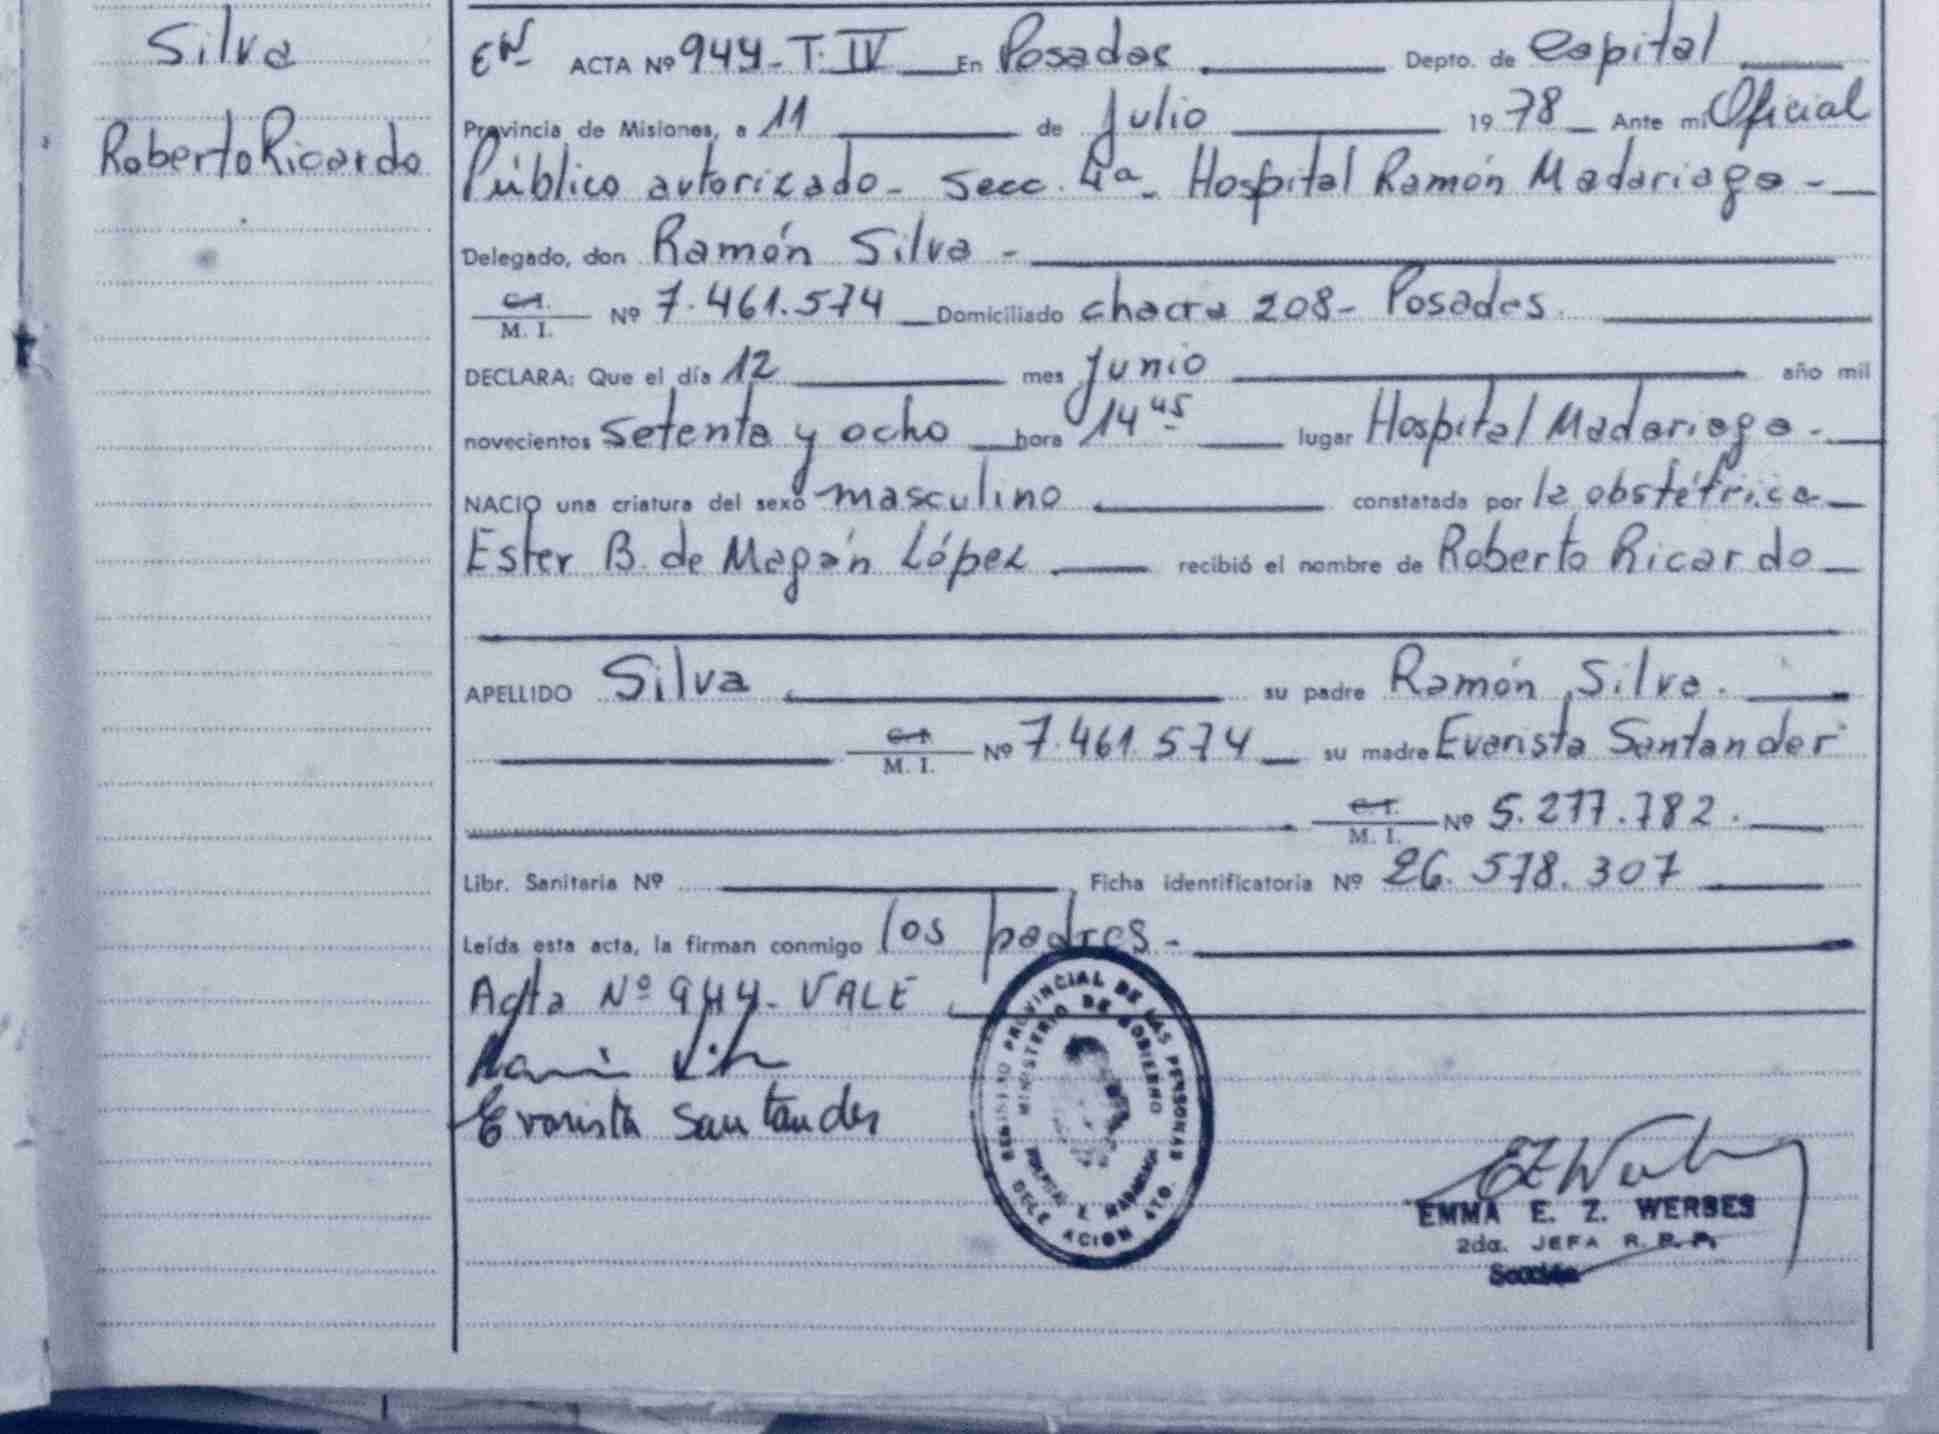 Silva
Roberto Ricardo
EN ACTA Nº 944 - T. IV En Posadas Depto. de Capital
Provincia de Misiones, a 11 de Julio 1978 Ante mi Oficial
Público autorizado - Secc. 4ª - Hospital Ramón Madariaga -
Delegado, don Ramón Silva -
C.I.
M. I. Nº 7.461.574 Domiciliado chacra 208 - Posadas.
DECLARA: Que el día 12 mes Junio año mil
novecientos setenta y ocho hora 14 45 lugar Hospital Madariaga -
NACIO una criatura del sexo masculino constatada por la obstétrica
Ester B. de Magán López recibió el nombre de Roberto Ricardo
APELLIDO Silva su padre Ramón Silva.
C.I.
M. I. Nº 7.461.574 su madre Evarista Santander
C.I.
M. I. Nº 5.277.782.
Libr. Sanitaria Nº Ficha identificatoria Nº 26.578.307
Leída esta acta, la firman conmigo los padres -
Acta Nº 944 - VALE
Evarista Santander
REGISTRO PROVINCIAL DE LAS PERSONAS
MINISTERIO DE GOBIERNO
HOSPITAL R. MADARIAGA
DELEGACION 4TO.
EMMA E. Z. WERBES
2da. JEFA R. P. P.
Sección